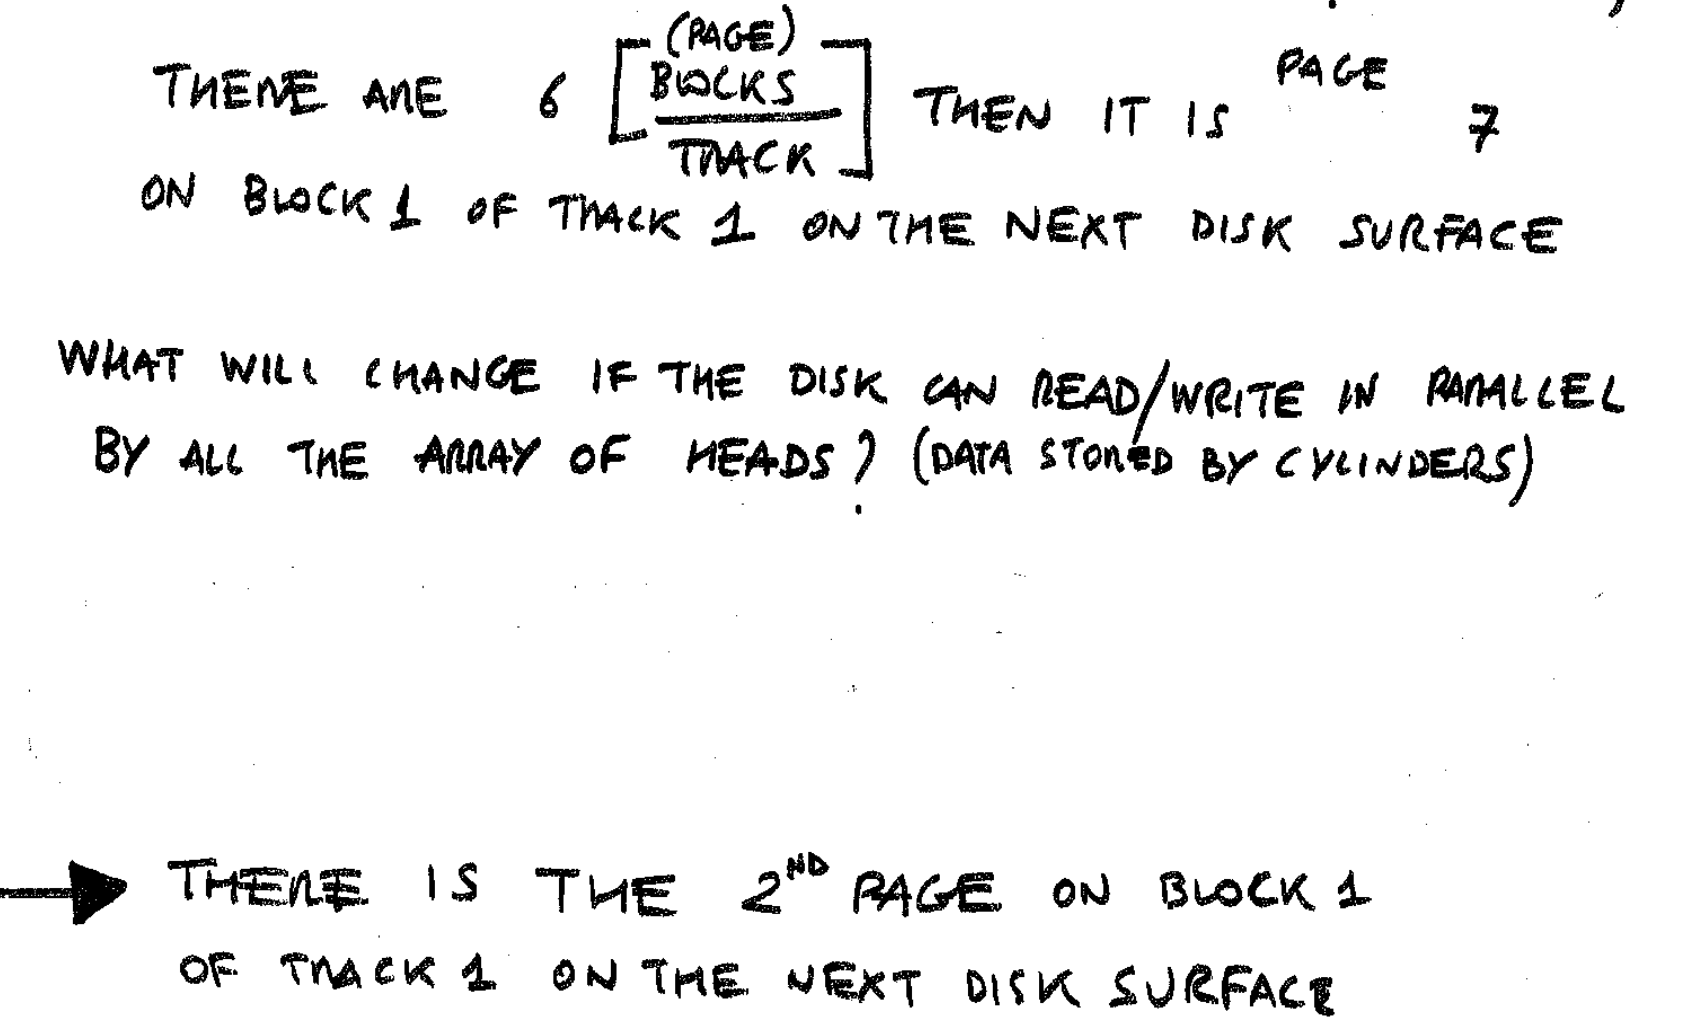 THERE ARE 6 [(PAGE) BLOCKS / TRACK] THEN IT IS PAGE 7
ON BLOCK 1 OF TRACK 1 ON THE NEXT DISK SURFACE
WHAT WILL CHANGE IF THE DISK CAN READ/WRITE IN PARALLEL
BY ALL THE ARRAY OF HEADS? (DATA STORED BY CYLINDERS)
THERE IS THE 2ND PAGE ON BLOCK 1
OF TRACK 1 ON THE NEXT DISK SURFACE